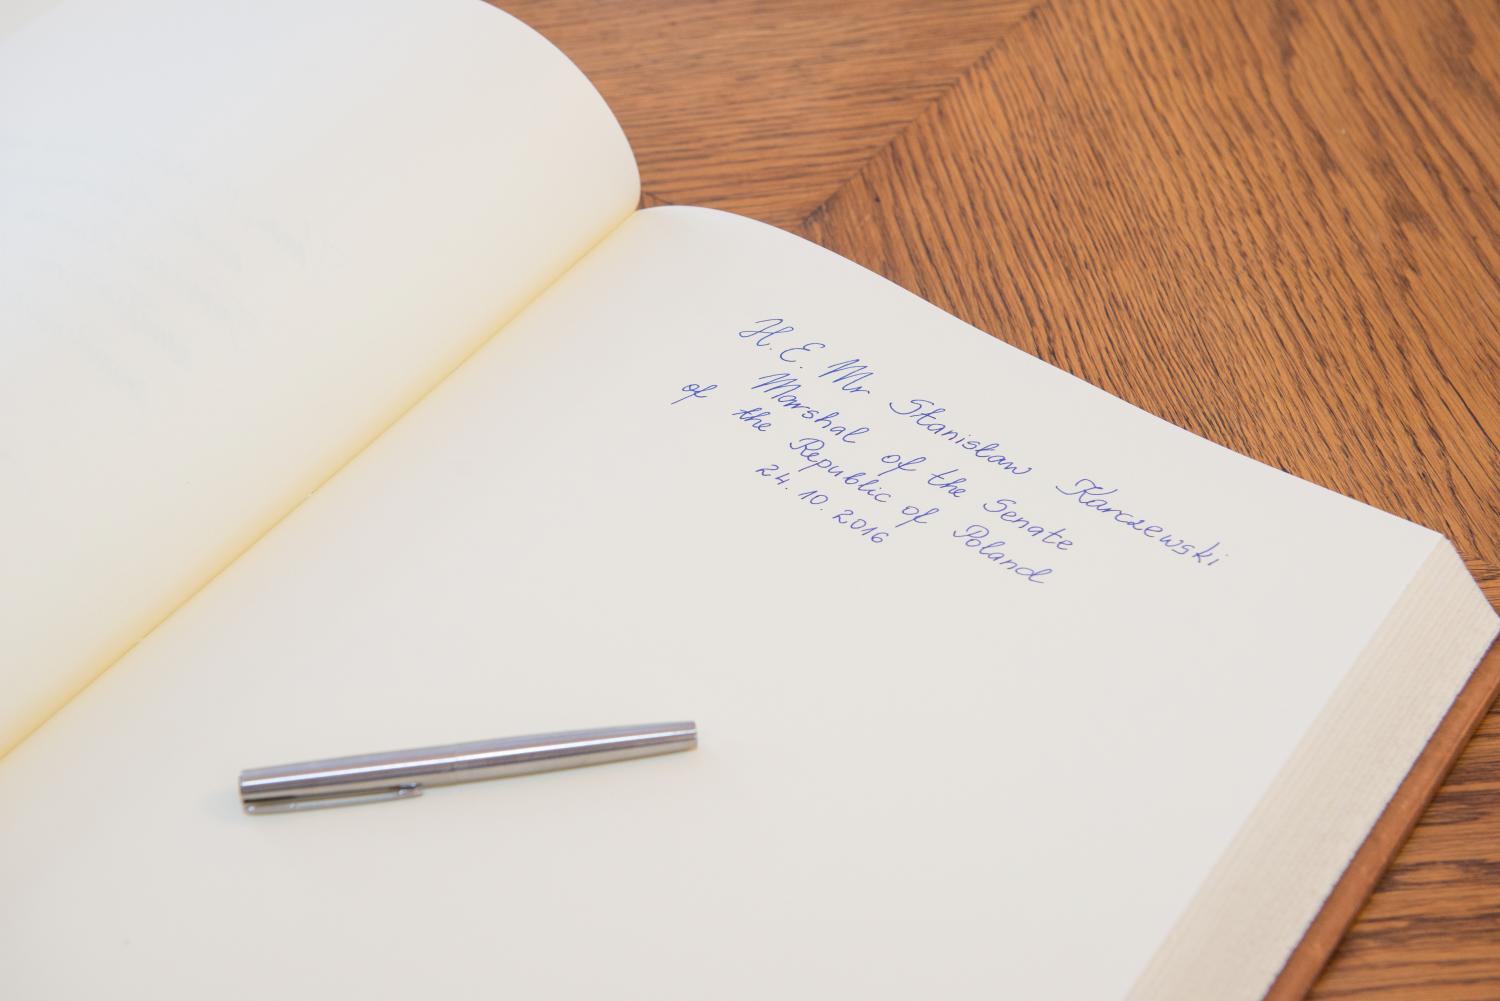 H. E. Mr Stanisław Karczewski
Marshal of the Senate
of the Republic of Poland
24. 10. 2016